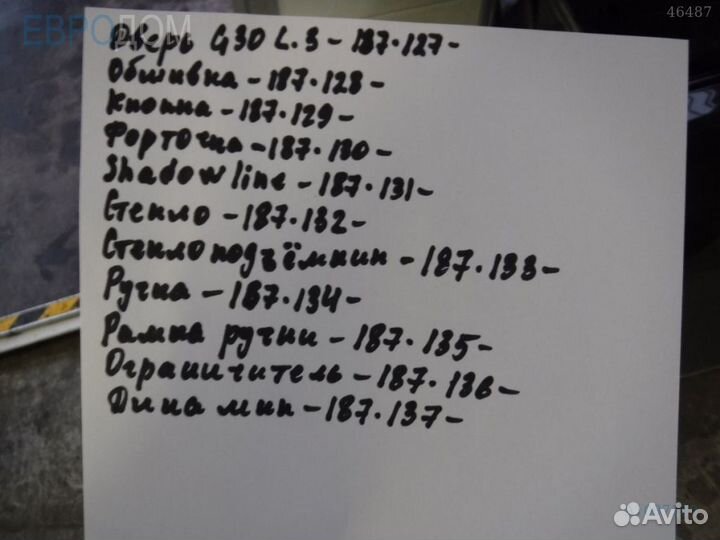 46487
ЕВРОДОМ
Дверь G30 L.З - 187.127-
Обшивка - 187.128-
Кнопка - 187.129-
Форточка - 187.130-
Shadow line - 187.131-
Стекло - 187.132-
Стеклоподъёмник - 187.133-
Ручка - 187.134-
Рамка ручки - 187.135-
Ограничитель - 187.136-
Динамик - 187.137-
Avito